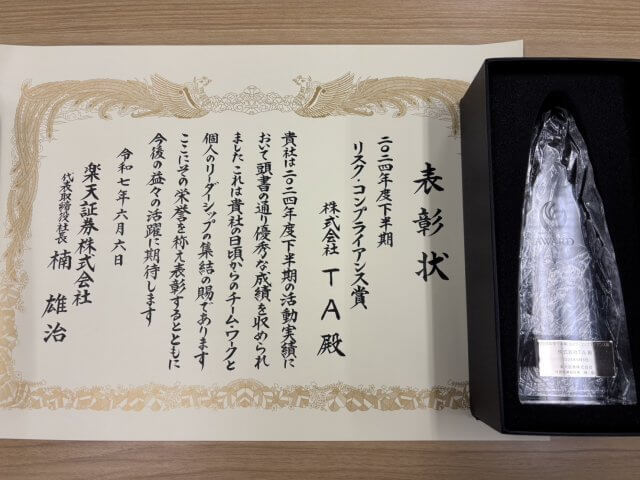 表彰状
二〇二四年度下半期
リスク・コンプライアンス賞
株式会社 TA 殿
貴社は二〇二四年度下半期の活動実績に
おいて頭書の通り優秀な成績を収められ
ました これは貴社の日頃からのチーム・ワークと
個人のリーダーシップの集結の賜であります
ここにその栄誉を称え表彰するとともに
今後の益々の活躍に期待します
令和七年六月六日
楽天証券株式会社
代表取締役社長 楠 雄治
株式会社TA 殿